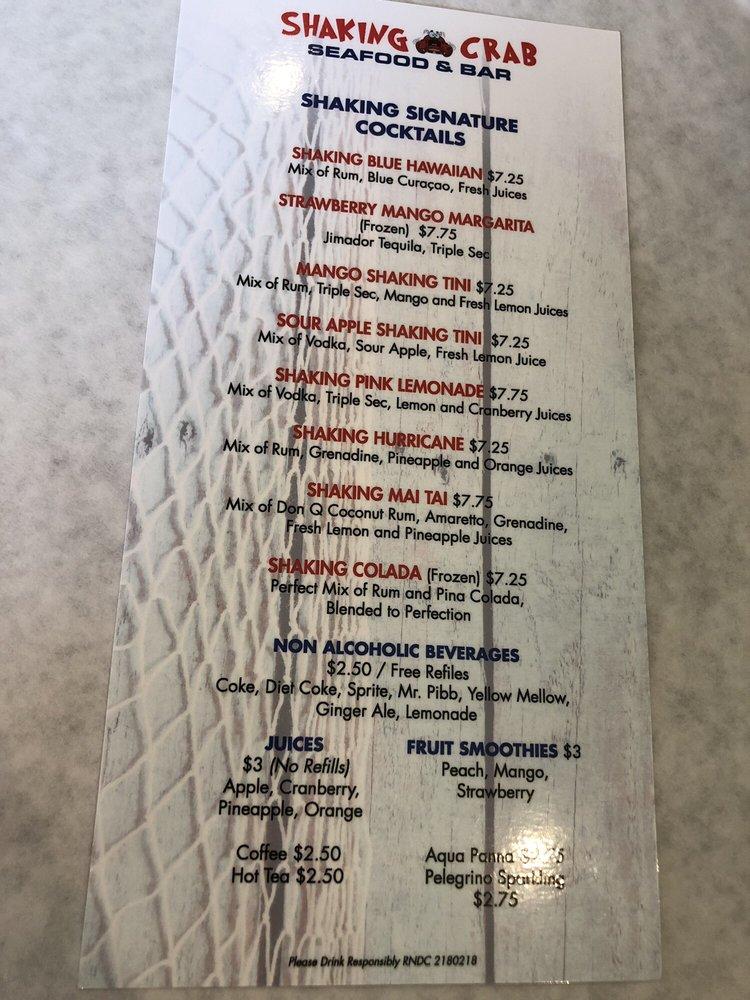 SHAKING CRAB
SEAFOOD & BAR
SHAKING SIGNATURE
COCKTAILS
SHAKING BLUE HAWAIIAN $7.25
Mix of Rum, Blue Curaçao, Fresh Juices
STRAWBERRY MANGO MARGARITA
(Frozen) $7.75
Jimador Tequila, Triple Sec
MANGO SHAKING TINI $7.25
Mix of Rum, Triple Sec, Mango and Fresh Lemon Juices
SOUR APPLE SHAKING TINI $7.25
Mix of Vodka, Sour Apple, Fresh Lemon Juice
SHAKING PINK LEMONADE $7.75
Mix of Vodka, Triple Sec, Lemon and Cranberry Juices
SHAKING HURRICANE $7.25
Mix of Rum, Grenadine, Pineapple and Orange Juices
SHAKING MAI TAI $7.75
Mix of Don Q Coconut Rum, Amaretto, Grenadine,
Fresh Lemon and Pineapple Juices
SHAKING COLADA (Frozen) $7.25
Perfect Mix of Rum and Pina Colada,
Blended to Perfection
NON ALCOHOLIC BEVERAGES
$2.50 / Free Refiles
Coke, Diet Coke, Sprite, Mr. Pibb, Yellow Mellow,
Ginger Ale, Lemonade
JUICES
$3 (No Refills)
Apple, Cranberry,
Pineapple, Orange
Coffee $2.50
Hot Tea $2.50
FRUIT SMOOTHIES $3
Peach, Mango,
Strawberry
Aqua Panna
Pelegrino Sparkling
$2.75
Please Drink Responsibly RNDC 2180218